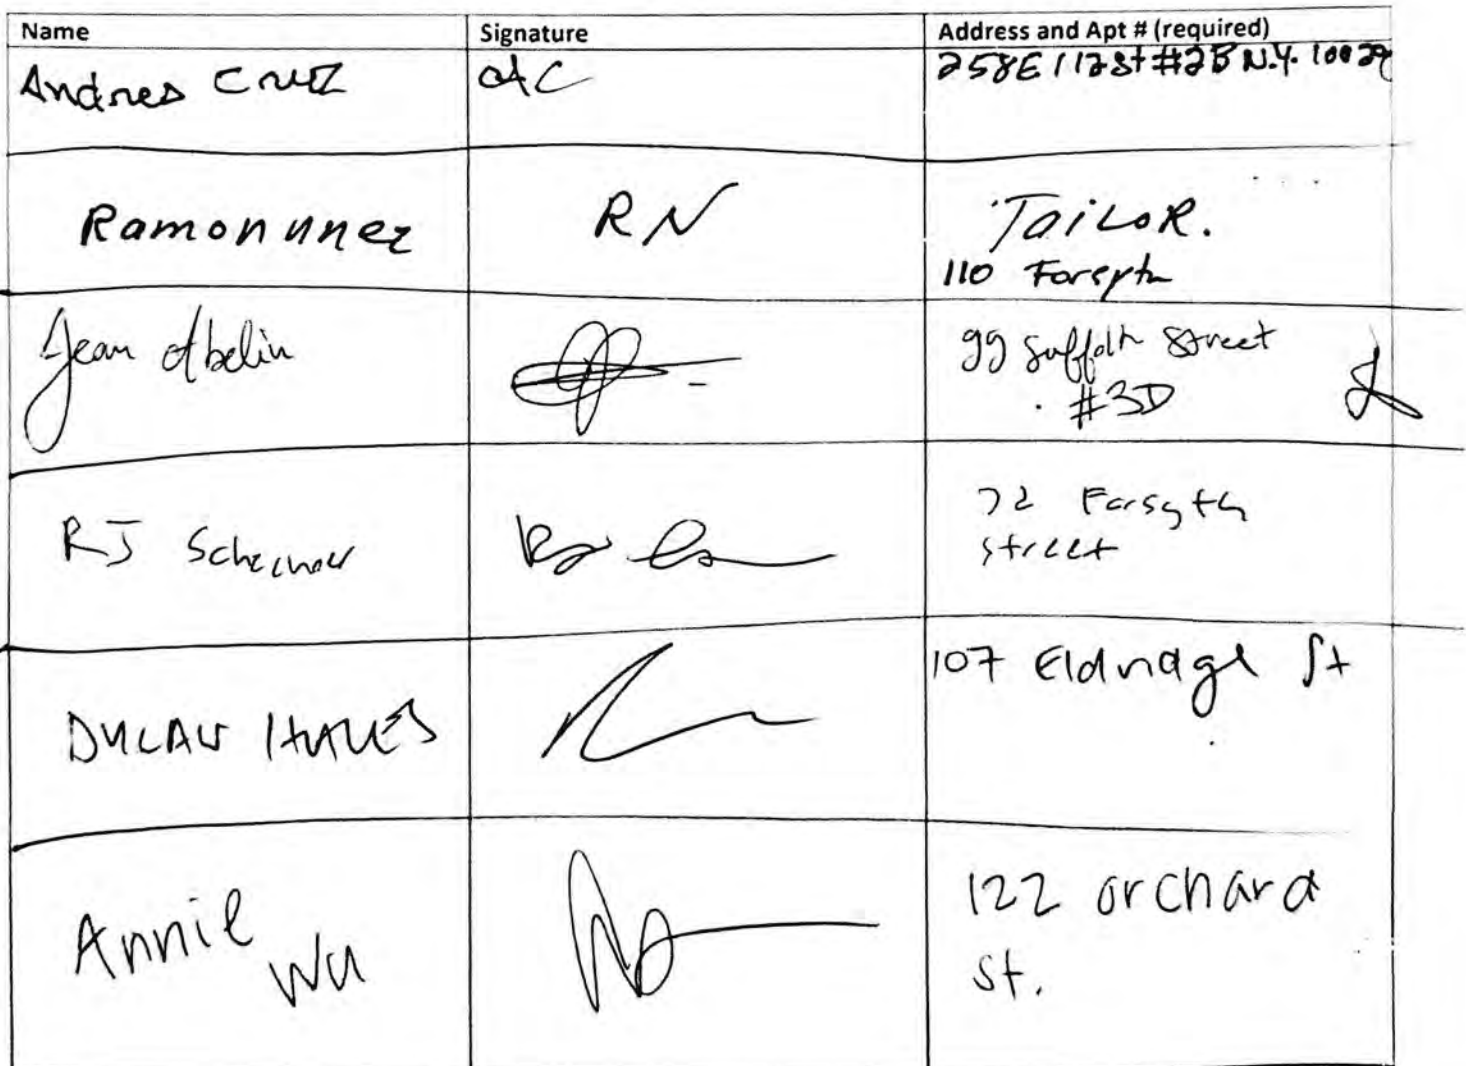 Name Signature Address and Apt # (required)
Andres Cruz AC 258E 112St #2B N.Y. 10029
Ramon nnez RN TaiLoR.
110 Forsyth
Jean Abelin 99 Suffolk Street
#3D
RJ 72 Forsyth
street
DYLAN HALES 107 Eldridge St
Annie 122 orchard
Wu St.